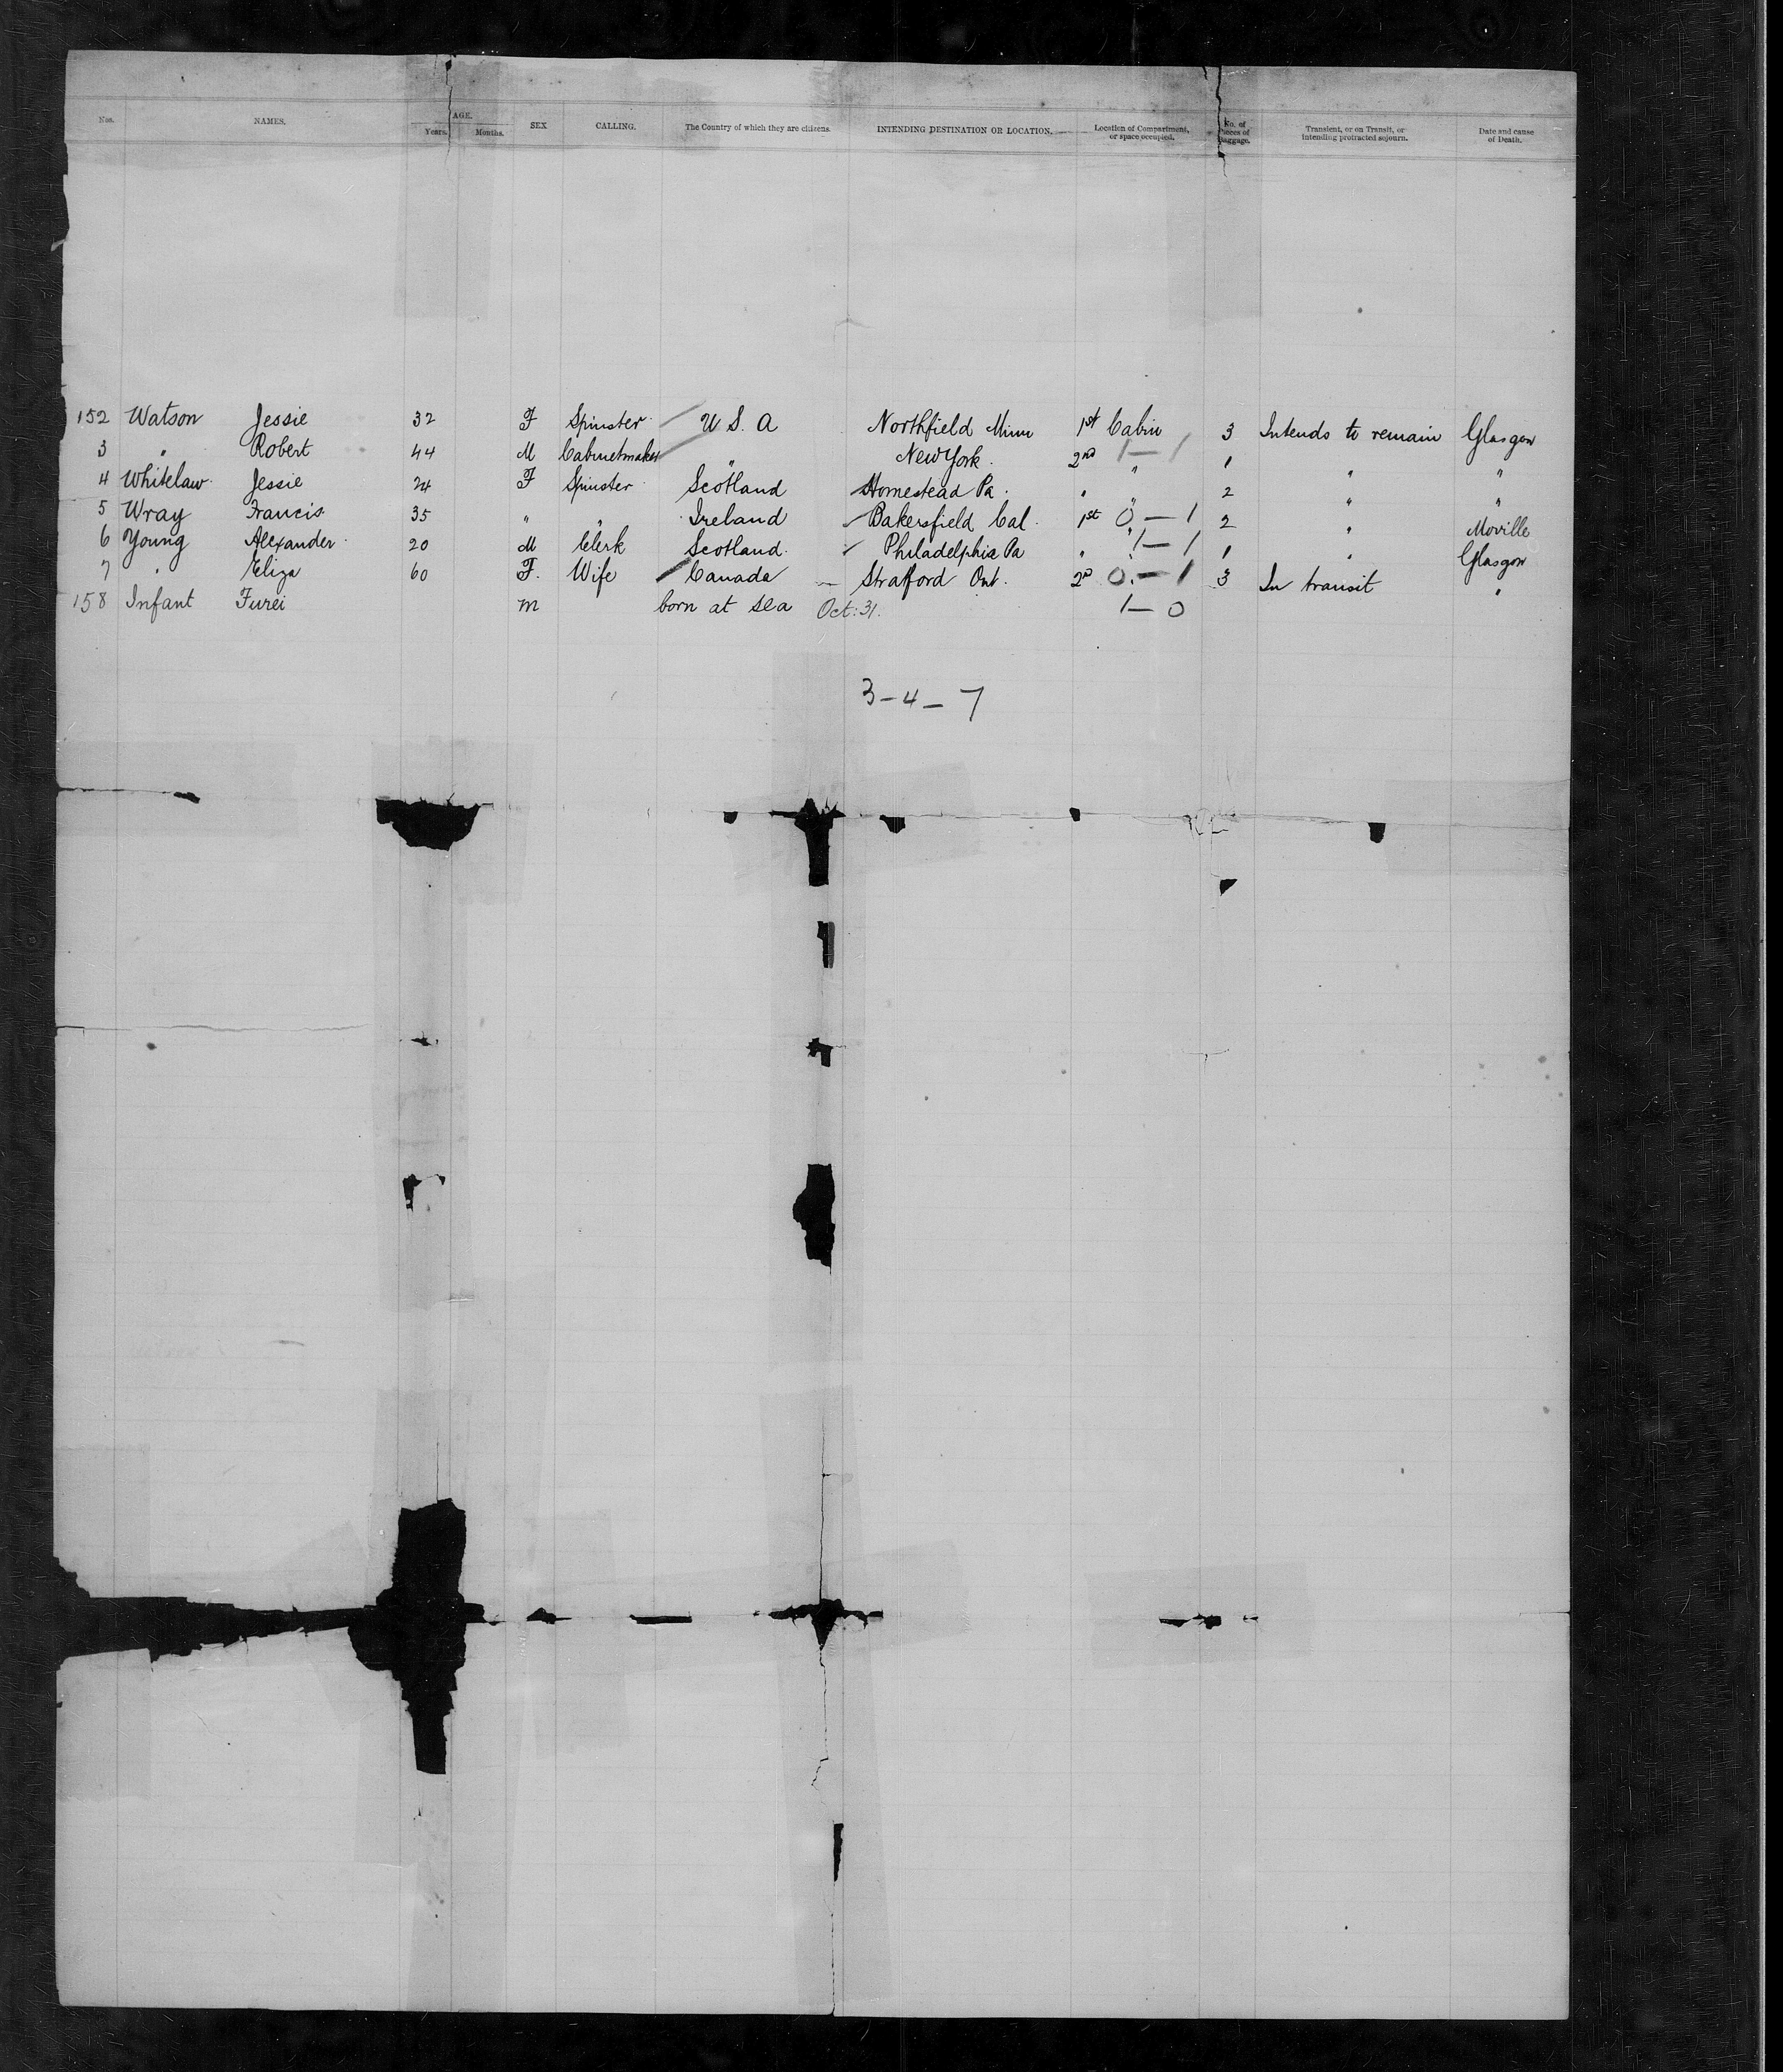 Nos. NAMES. AGE. Years. Months. SEX CALLING. The Country of which they are citizens. INTENDING DESTINATION OR LOCATION. Location of Compartment, or space occupied. No. of Pieces of Baggage. Transient, or on Transit, or intending protracted sojourn. Date and cause of Death.
152 Watson Jessie 32 F Spinster U S. A Northfield Minn 1st Cabin 3 Intends to remain Glasgow
3 " Robert 44 M Cabinetmaker " New York 2nd " 1 — 1 1 " "
4 Whitelaw Jessie 24 F Spinster Scotland Homestead Pa " " 2 " "
5 Wray Francis 35 " " Ireland Bakersfield Cal. 1st 0 — 1 2 " Moville
6 Young Alexander 20 M Clerk Scotland Philadelphia Pa " " 1 — 1 1 " Glasgow
7 " Eliza 60 F. Wife Canada Strafford Ont. 2d 0 — 1 3 In transit "
158 Infant Furei m born at sea Oct: 31. 1 — 0
3 — 4 — 7